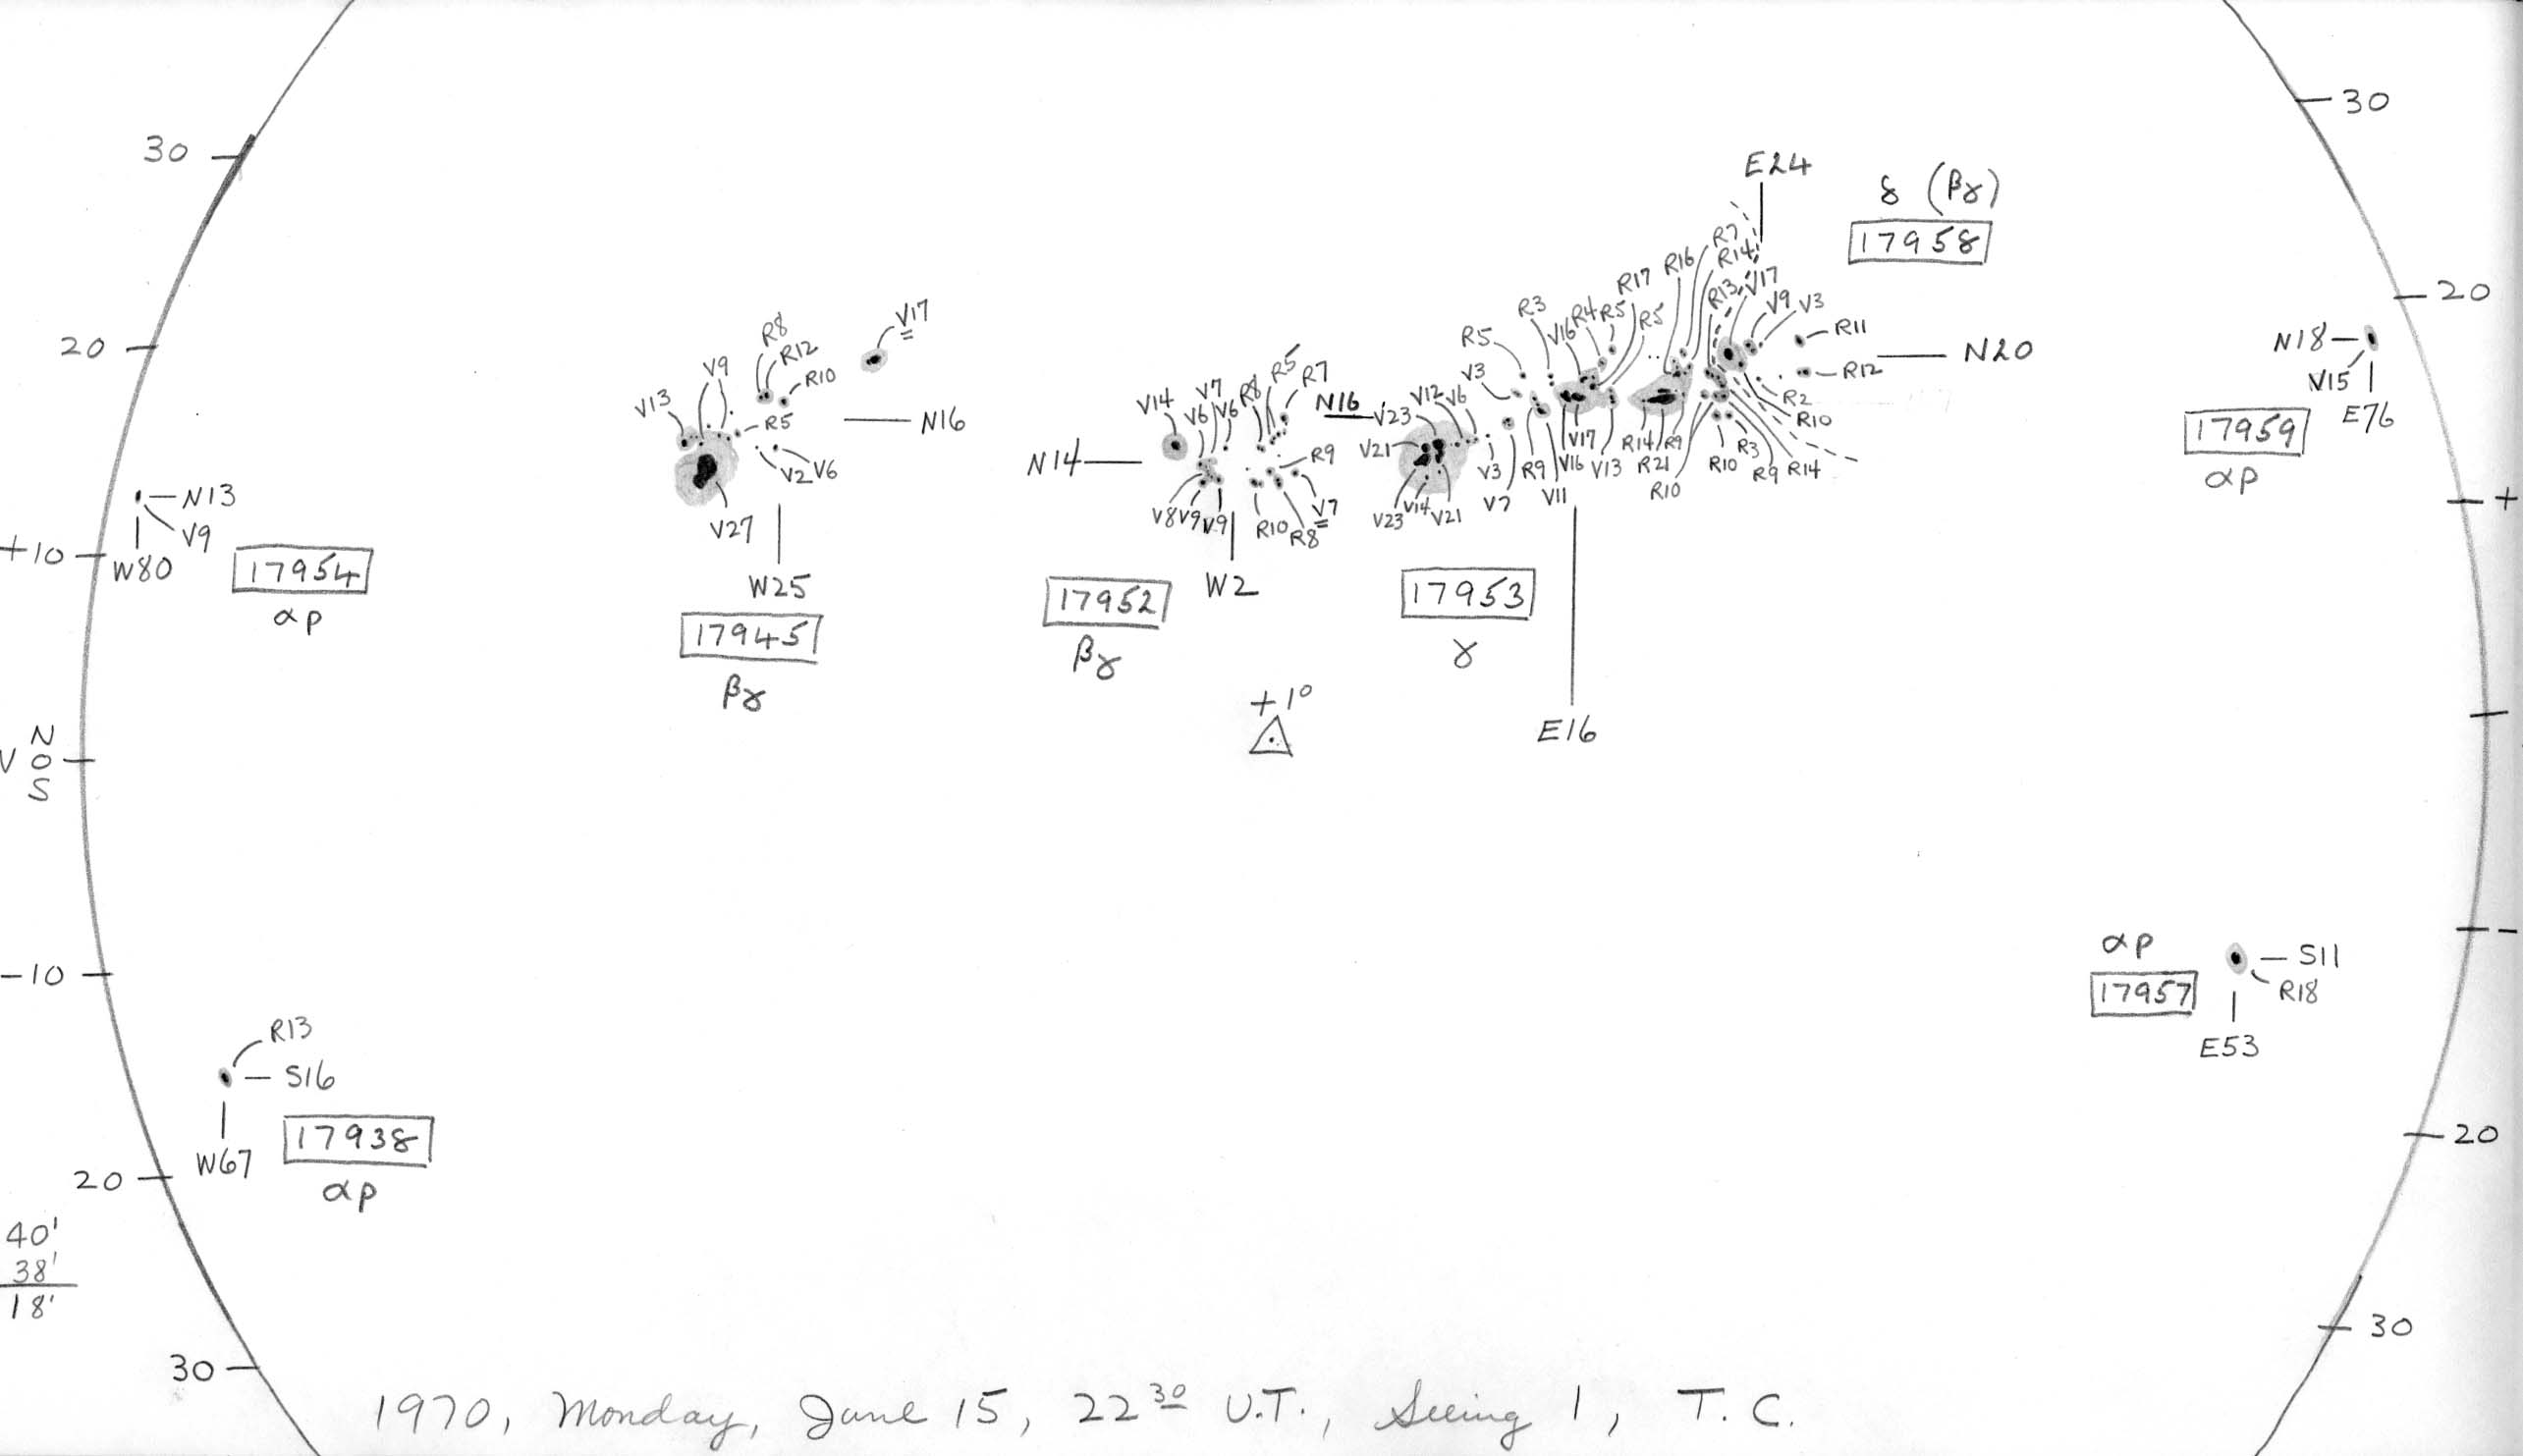 30
20
N13
V9
+10
W80
17954
αp
N
V 0
S
-10
R13
S16
W67
17938
αp
20
40'
38'
18'
30
V17
R8
R12
V9
R10
V13
R5
N16
V2 V6
V27
W25
17945
βγ
V14
V7
V6
V6
R8
R5
R7
N14
R9
V8
V9
V9
R10
R8
V7
W2
17952
βγ
+1°
N16
V23
V12
V6
V21
V23
V14
V21
17953
γ
R5
V3
R3
V16
R4
R5
R17
R5
R16
R7
R14
R13
V17
V9
V3
R11
N20
R12
R2
R10
V3
V7
R9
V11
V16
V17
V13
R14
R21
R9
R10
R10
R3
R9
R14
E16
E24
δ (βγ)
17958
30
20
N18
V15
E76
17959
αp
+
-
αp
17957
S11
R18
E53
20
30
1970, Monday, June 15, 22 30 U.T., Seeing 1, T. C.